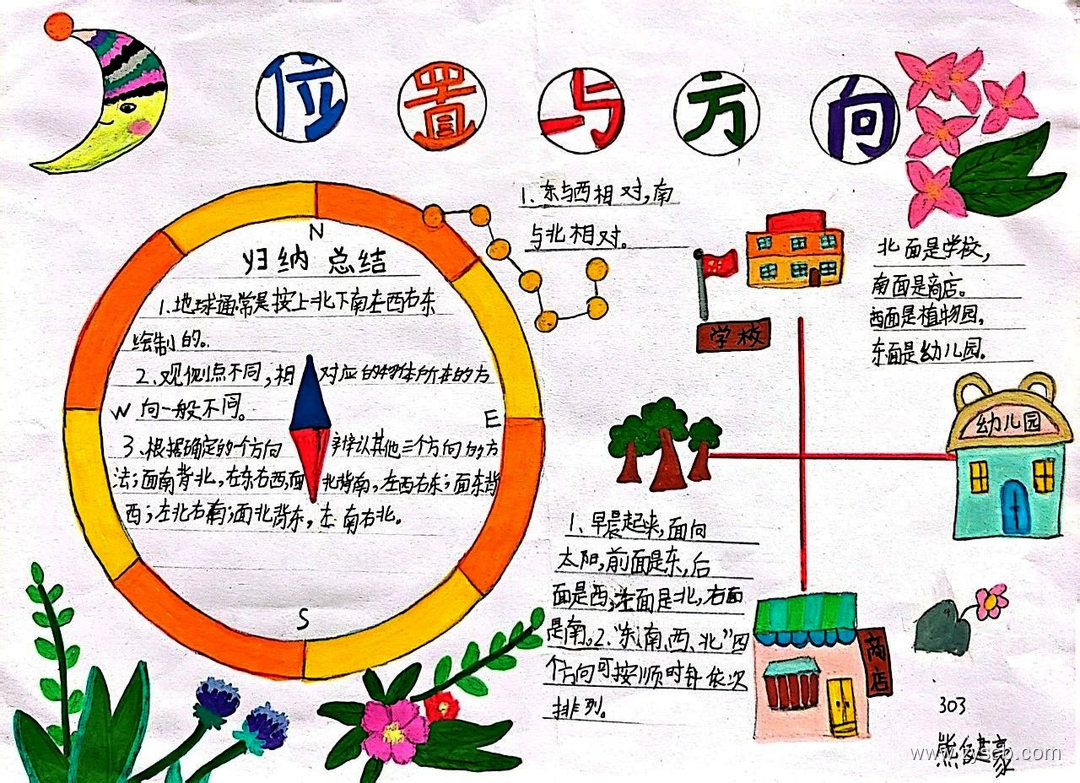 位置与方向
N
归纳总结
1.地球通常是按上北下南左西右东
绘制的。
2.观测点不同,相对应的物体所在的方
W
向一般不同。
E
3.根据确定的一个方向辨认其他三个方向的方
法;面南背北,左东右西,面北背南,左西右东;面东背
西;左北右南;面北背东,左南右北。
S
1.东与西相对,南
与北相对。
学校
北面是学校,
南面是商店。
西面是植物园,
东面是幼儿园。
幼儿园
1.早晨起来,面向
太阳,前面是东,后
面是西;左面是北,右面
是南。2."东、南、西、北"四
个方向可按顺时针依次
排列。
商店
303